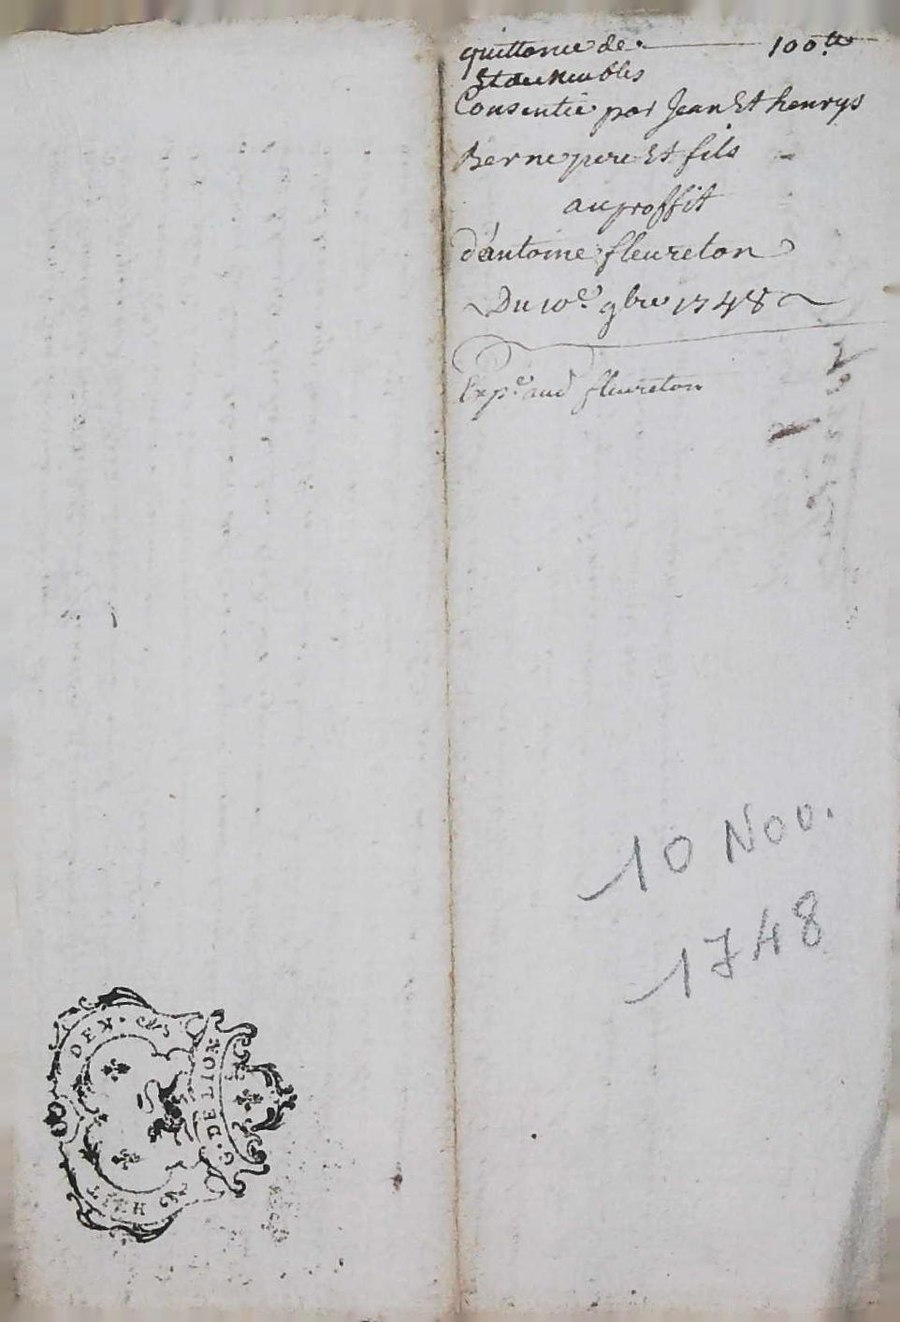 quittance de 100.tt
Et de meubles
Consentie par Jean Et henrys
Berne pere Et fils
au proffit
d'antoine fleureton
Du 10e. 9bre 1748
Exp.e aud fleureton
10 Nov.
1748
G. DE LION
DEN.
HUIT